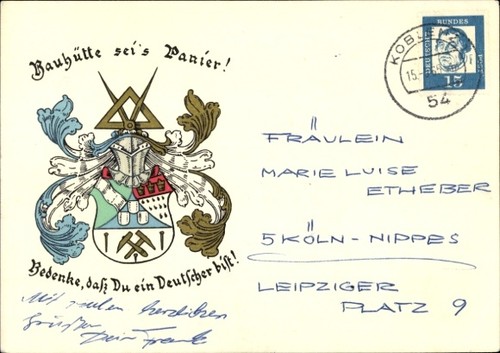 Bauhütte sei's Panier!
KOBLENZ
15.
54
DEUTSCHE BUNDESPOST
15
FRÄULEIN
MARIE LUISE
ETHEBER
5 KÖLN-NIPPES
LEIPZIGER
PLATZ 9
Bedenke, daß Du ein Deutscher bist!
Mit vielen herzlichen
Grüßen
Dein Frank